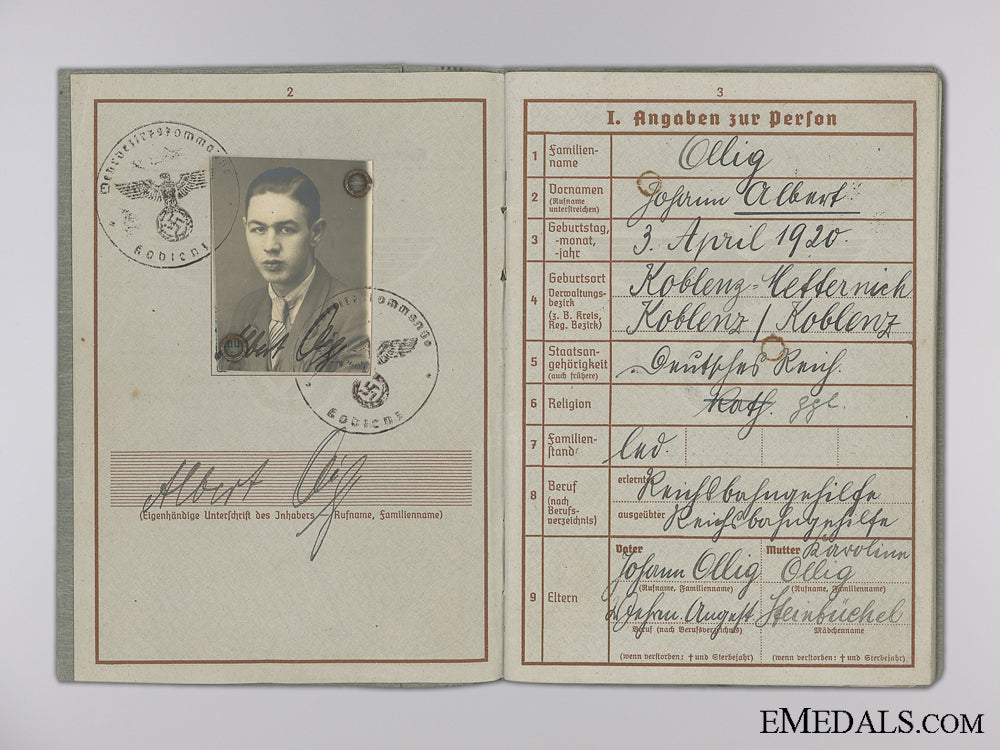 2
Wehrbezirkskommando
Koblenz
Albert Ollig
Wehrbezirkskommando
Koblenz
Albert Ollig
(Eigenhändige Unterschrift des Inhabers — Rufname, Familienname)
3
I. Angaben zur Person
1 Familien-
name
Ollig
2 Vornamen
(Rufname
unterstreichen)
Johann Albert
3 Geburtstag,
-monat,
-jahr
3. April 1920.
4 Geburtsort
Verwaltungs-
bezirk
(z. B. Kreis,
Reg. Bezirk)
Koblenz-Metternich
Koblenz / Koblenz
5 Staatsan-
gehörigkeit
(auch frühere)
Deutsches Reich.
6 Religion
Kath. ggl.
7 Familien-
stand
led.
8 Beruf
(nach
Berufs-
verzeichnis)
erlernter Reichsbahngehilfe
ausgeübter Reichsbahngehilfe
9 Eltern
Vater
Johann Ollig
(Rufname, Familienname)
Angest
Beruf (nach Berufsverzeichnis)
(wenn verstorben: † und Sterbejahr)
Mutter Karoline
Ollig
(Rufname, Familienname)
Steinbüchel
Mädchenname
(wenn verstorben: † und Sterbejahr)
EMEDALS.COM